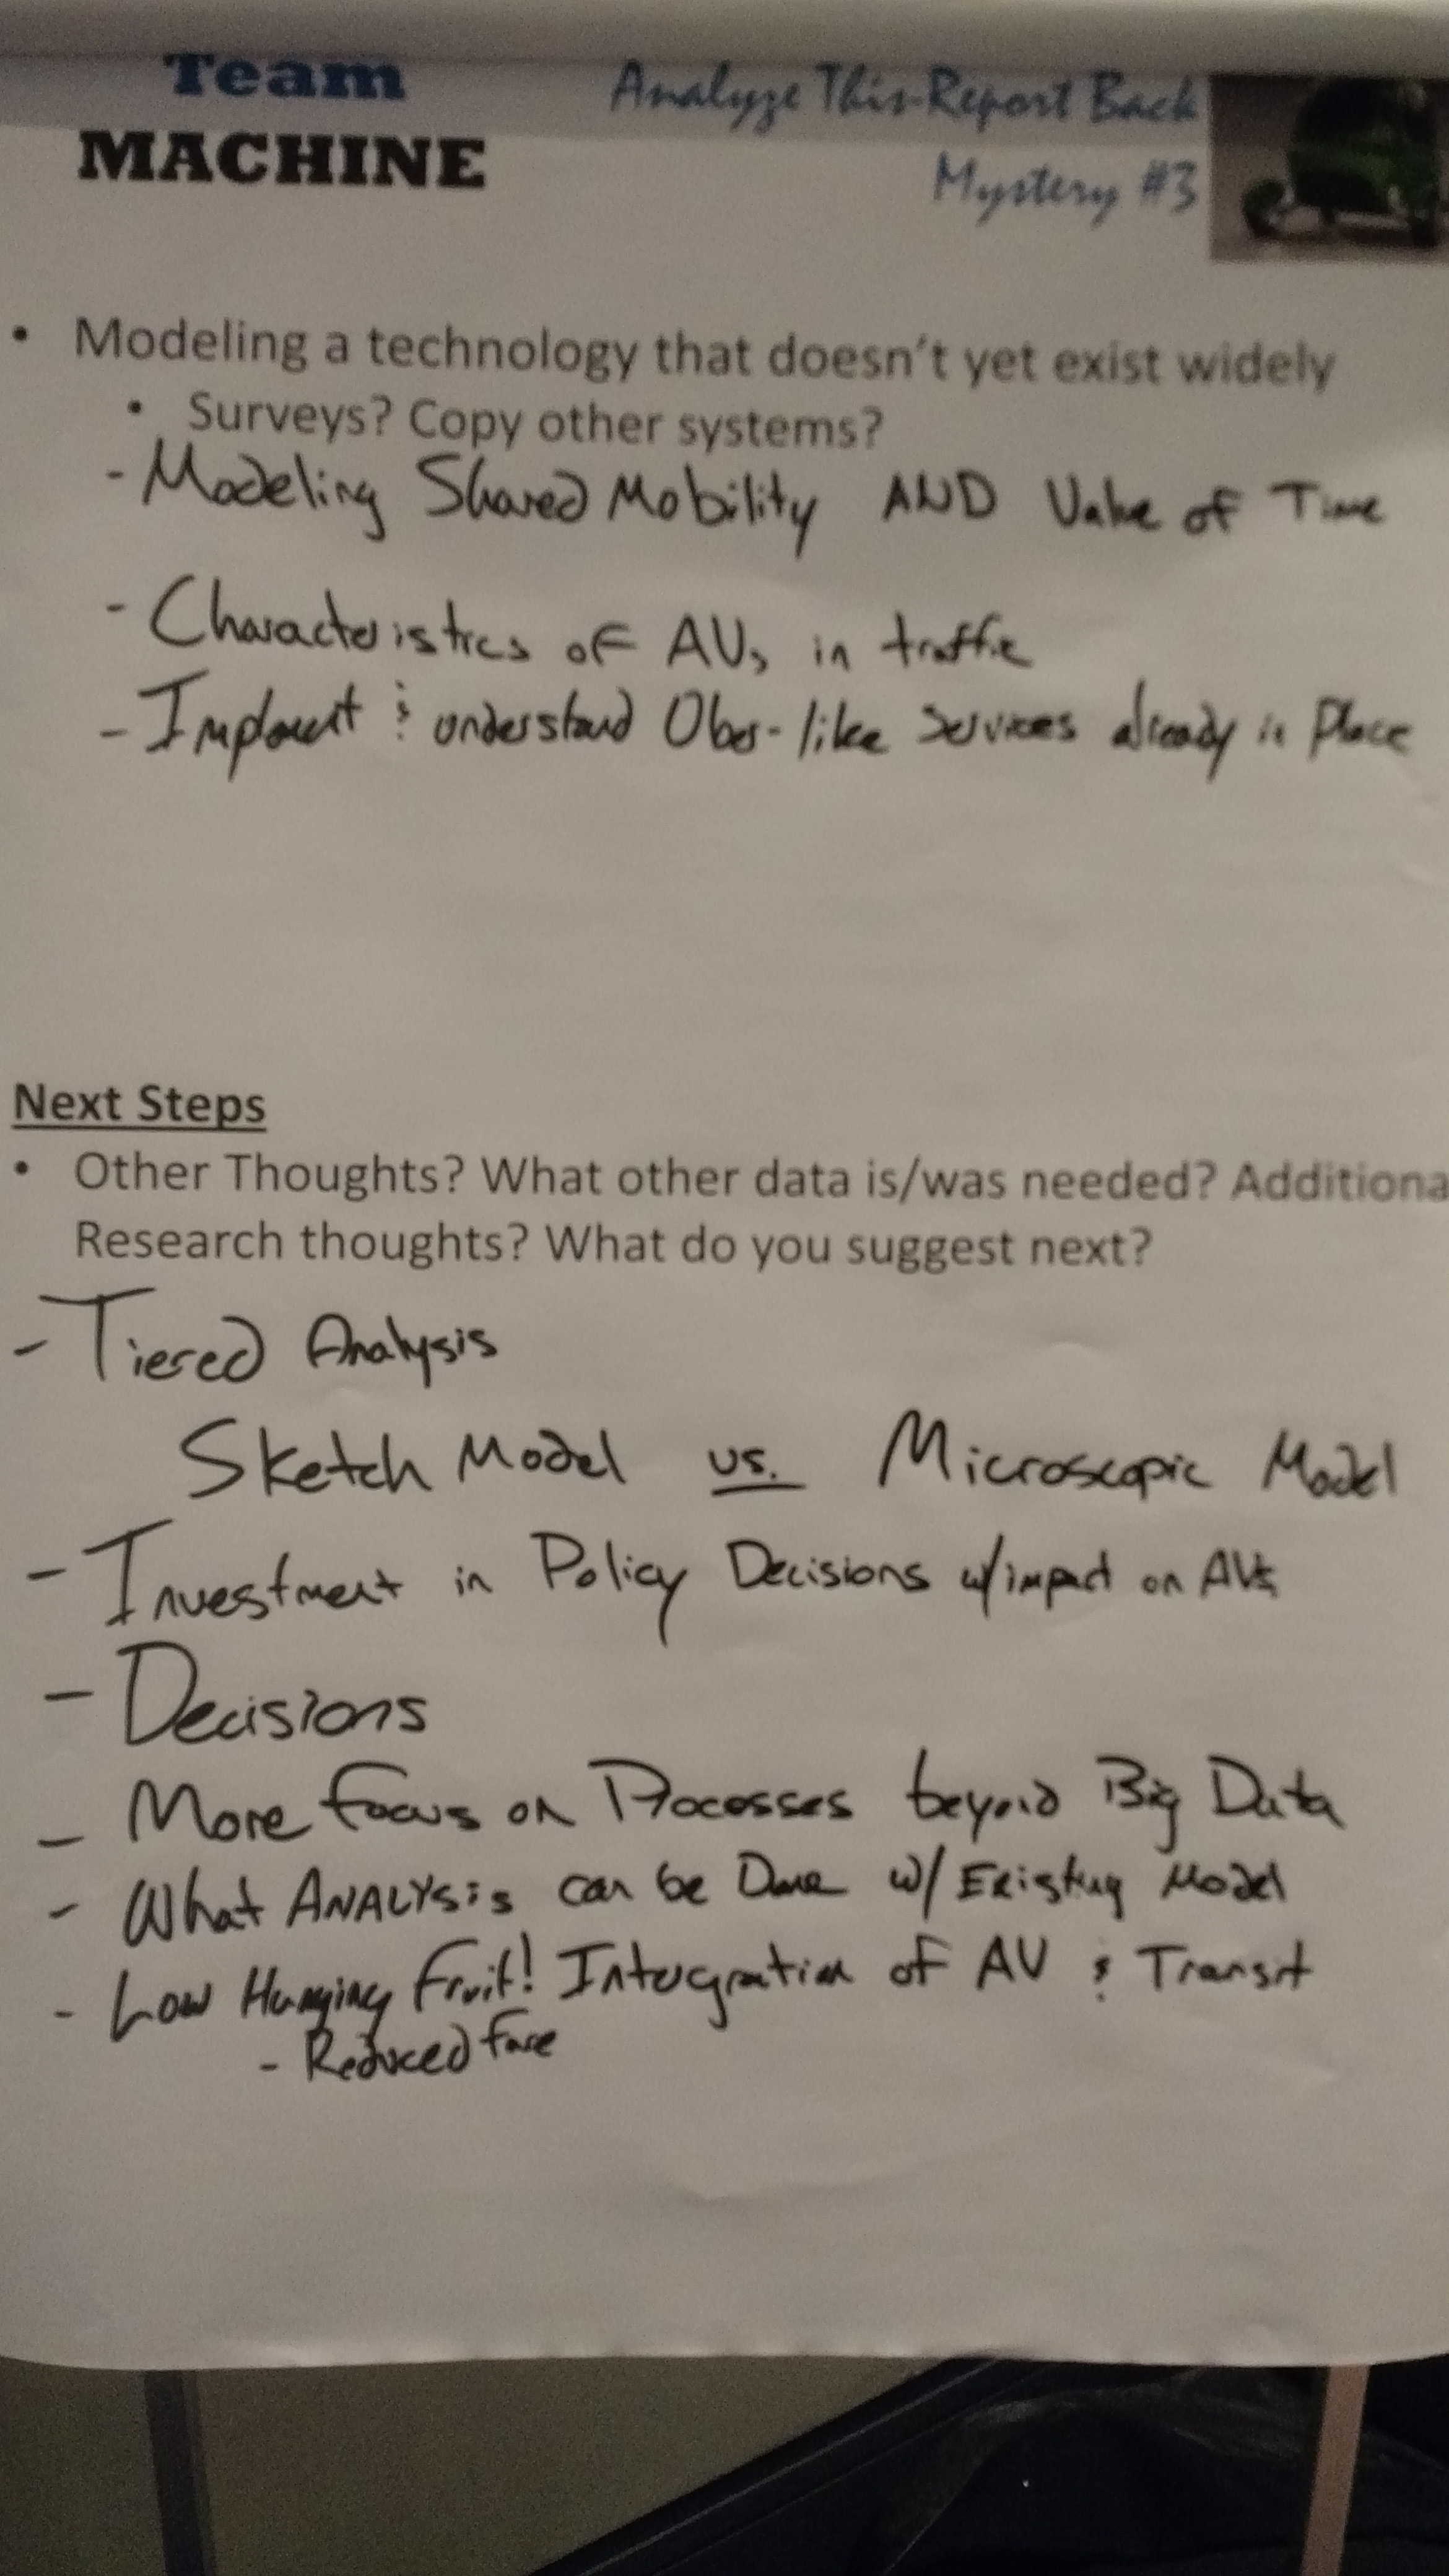 Team
MACHINE
Analyze This-Report Back
Mystery #3
• Modeling a technology that doesn't yet exist widely
• Surveys? Copy other systems?
- Modeling Shared Mobility AND Value of Time
- Characteristics of AVs in traffic
- & understand Uber-like Services already in Place
Next Steps
• Other Thoughts? What other data is/was needed? Additiona
Research thoughts? What do you suggest next?
- Tiered Analysis
Sketch Model vs. Microscopic Model
- Investment in Policy Decisions w/impact on AVs
- Decisions
- More Focus on Processes beyond Big Data
- What ANALYSis can be Done w/ Existing Model
- Low Hanging Fruit! Integration of AV & Transit
- Reduced Fare